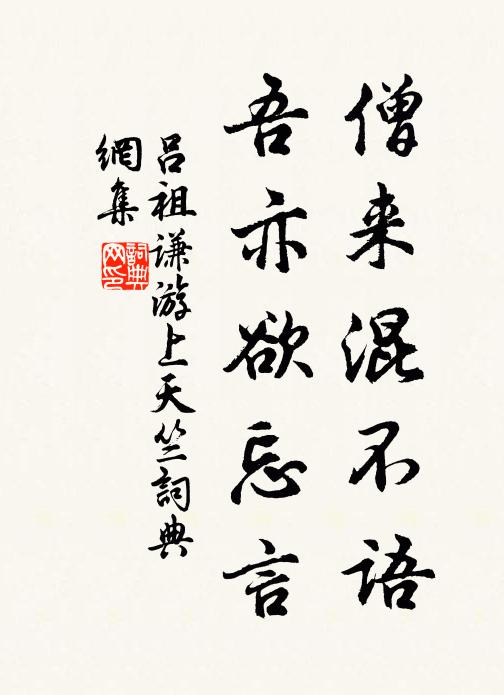 僧来混不语
吾亦欲忘言
吕祖谦游上天竺詞典
網集
詞典网印